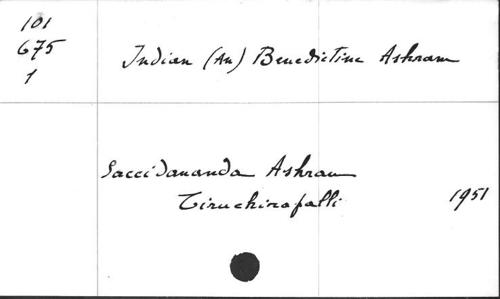 101
675
1
Indian (An) Benedictine Ashram
Saccidananda Ashram
Tiruchirapalli
1951